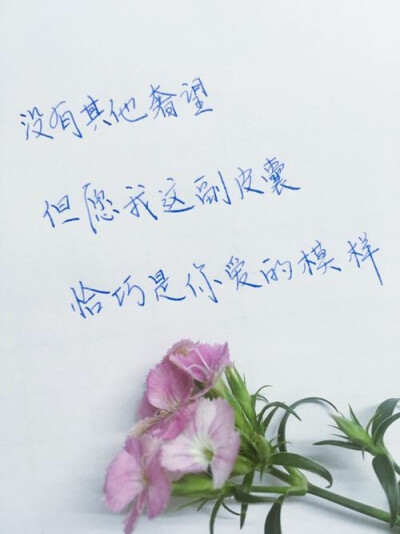 没有其他奢望
但愿我这副皮囊
恰巧是你爱的模样